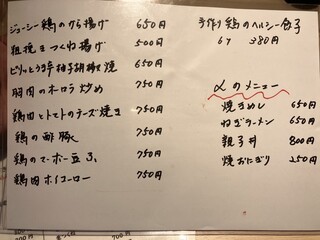 ジューシー鶏のから揚げ 650円
粗挽きつくね揚げ 500円
ピリッとうま辛柚子胡椒焼 650円
鶏肉のホロうま炒め 750円
鶏肉とトマトのチーズ焼き 750円
鶏の酢豚 750円
鶏のマーボー豆腐 750円
鶏肉ホイコーロー 750円
手作り鶏のヘルシー餃子
6ケ 380円
〆のメニュー
焼きめし 650円
ねぎラーメン 650円
親子丼 800円
焼おにぎり 250円